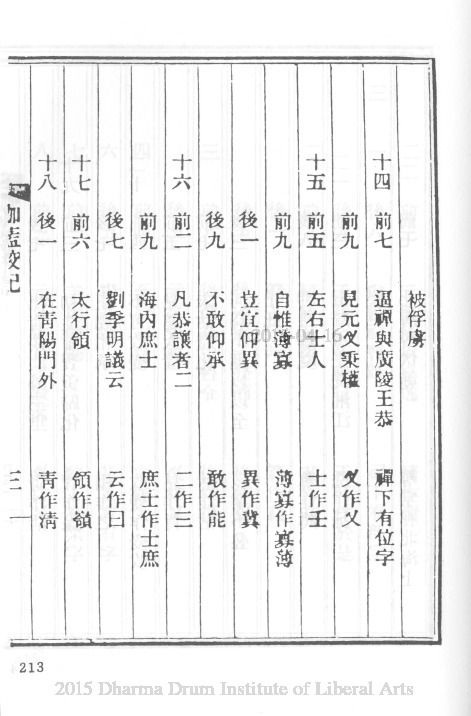 被俘虜
十四 前七 逼禪與廣陵王恭 禪下有位字
前九 見元叉秉權 叉作乂
十五 前五 左右士人 士作壬
前九 自惟薄寡 薄寡作寡薄
後一 豈宜仰異 異作冀
後九 不敢仰承 敢作能
十六 前二 凡恭讓者二 二作三
前九 海內庶士 庶士作士庶
後七 劉季明議云 云作曰
十七 前六 太行領 領作嶺
十八 後一 在青陽門外 青作清
伽藍校記 三一
213
2015 Dharma Drum Institute of Liberal Arts